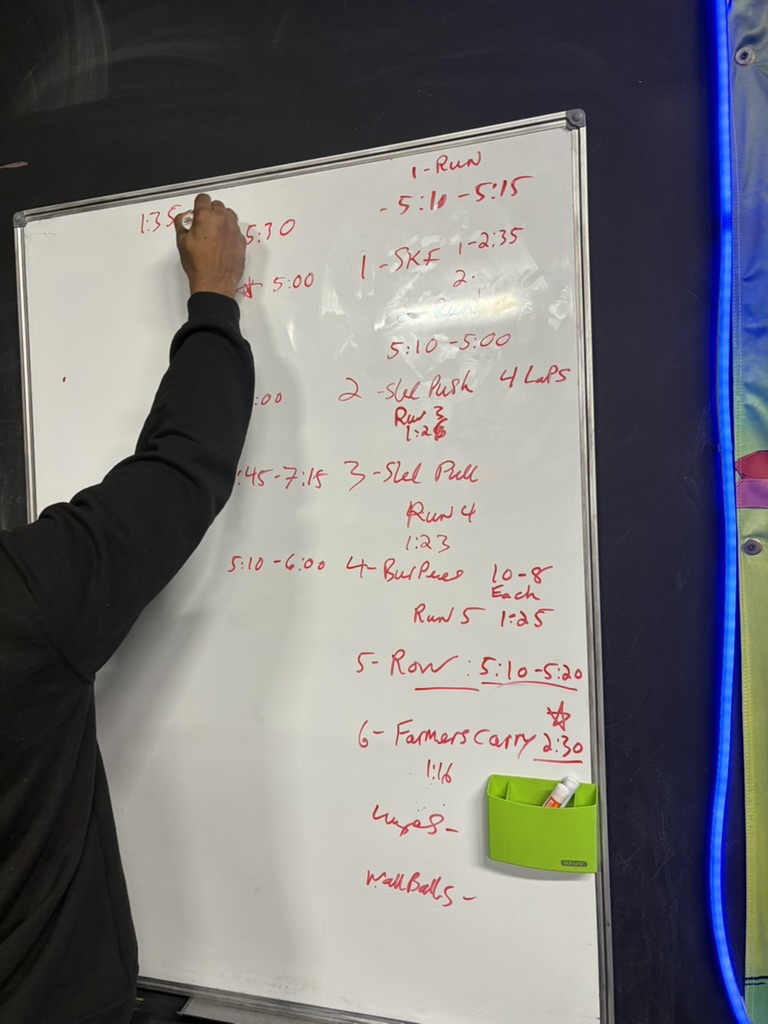 1-Run
- 5:10 - 5:15
1:35
5:30
1-SKF 1-2:35
2.
5:00
5:10 - 5:00
:00
2 - Sled Push 4 Laps
Run 3
1:26
:45 - 7:15 3 - Sled Pull
Run 4
1:23
5:10 - 6:00 4 - Burpees 10-8
Each
Run 5 1:25
5- Row : 5:10 - 5:20
6- Farmers Carry 2:30
1:16
Wall Balls -